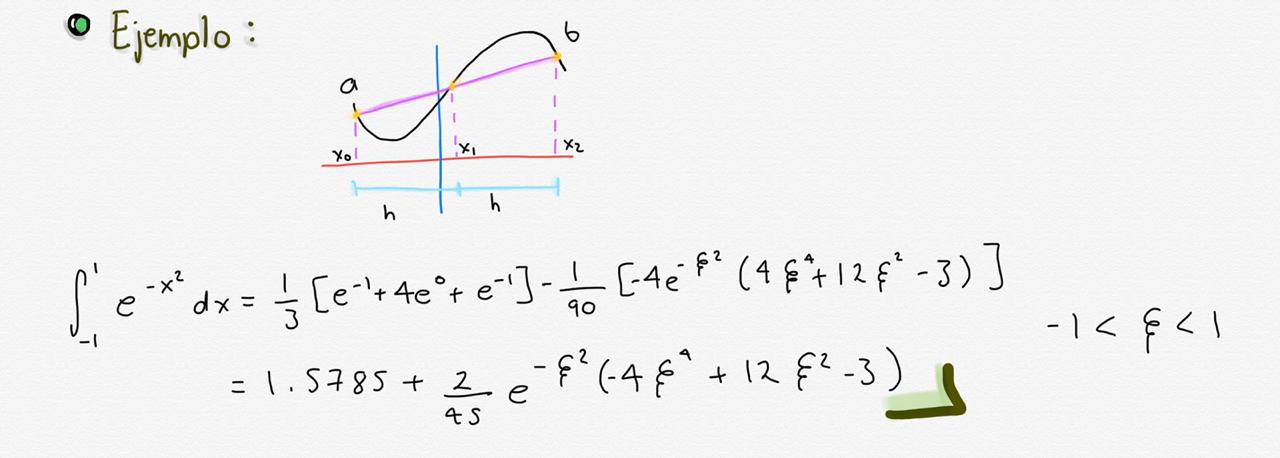 Ejemplo :
a
b
x₀ x₁ x₂
h h
∫₋₁¹ e^{-x²} dx = 1/3 [e⁻¹ + 4e⁰ + e⁻¹] - 1/90 [-4e^{-ξ²} (4ξ⁴ + 12ξ² - 3)] -1 < ξ < 1
= 1.5785 + 2/45 e^{-ξ²} (-4ξ⁴ + 12ξ² - 3)